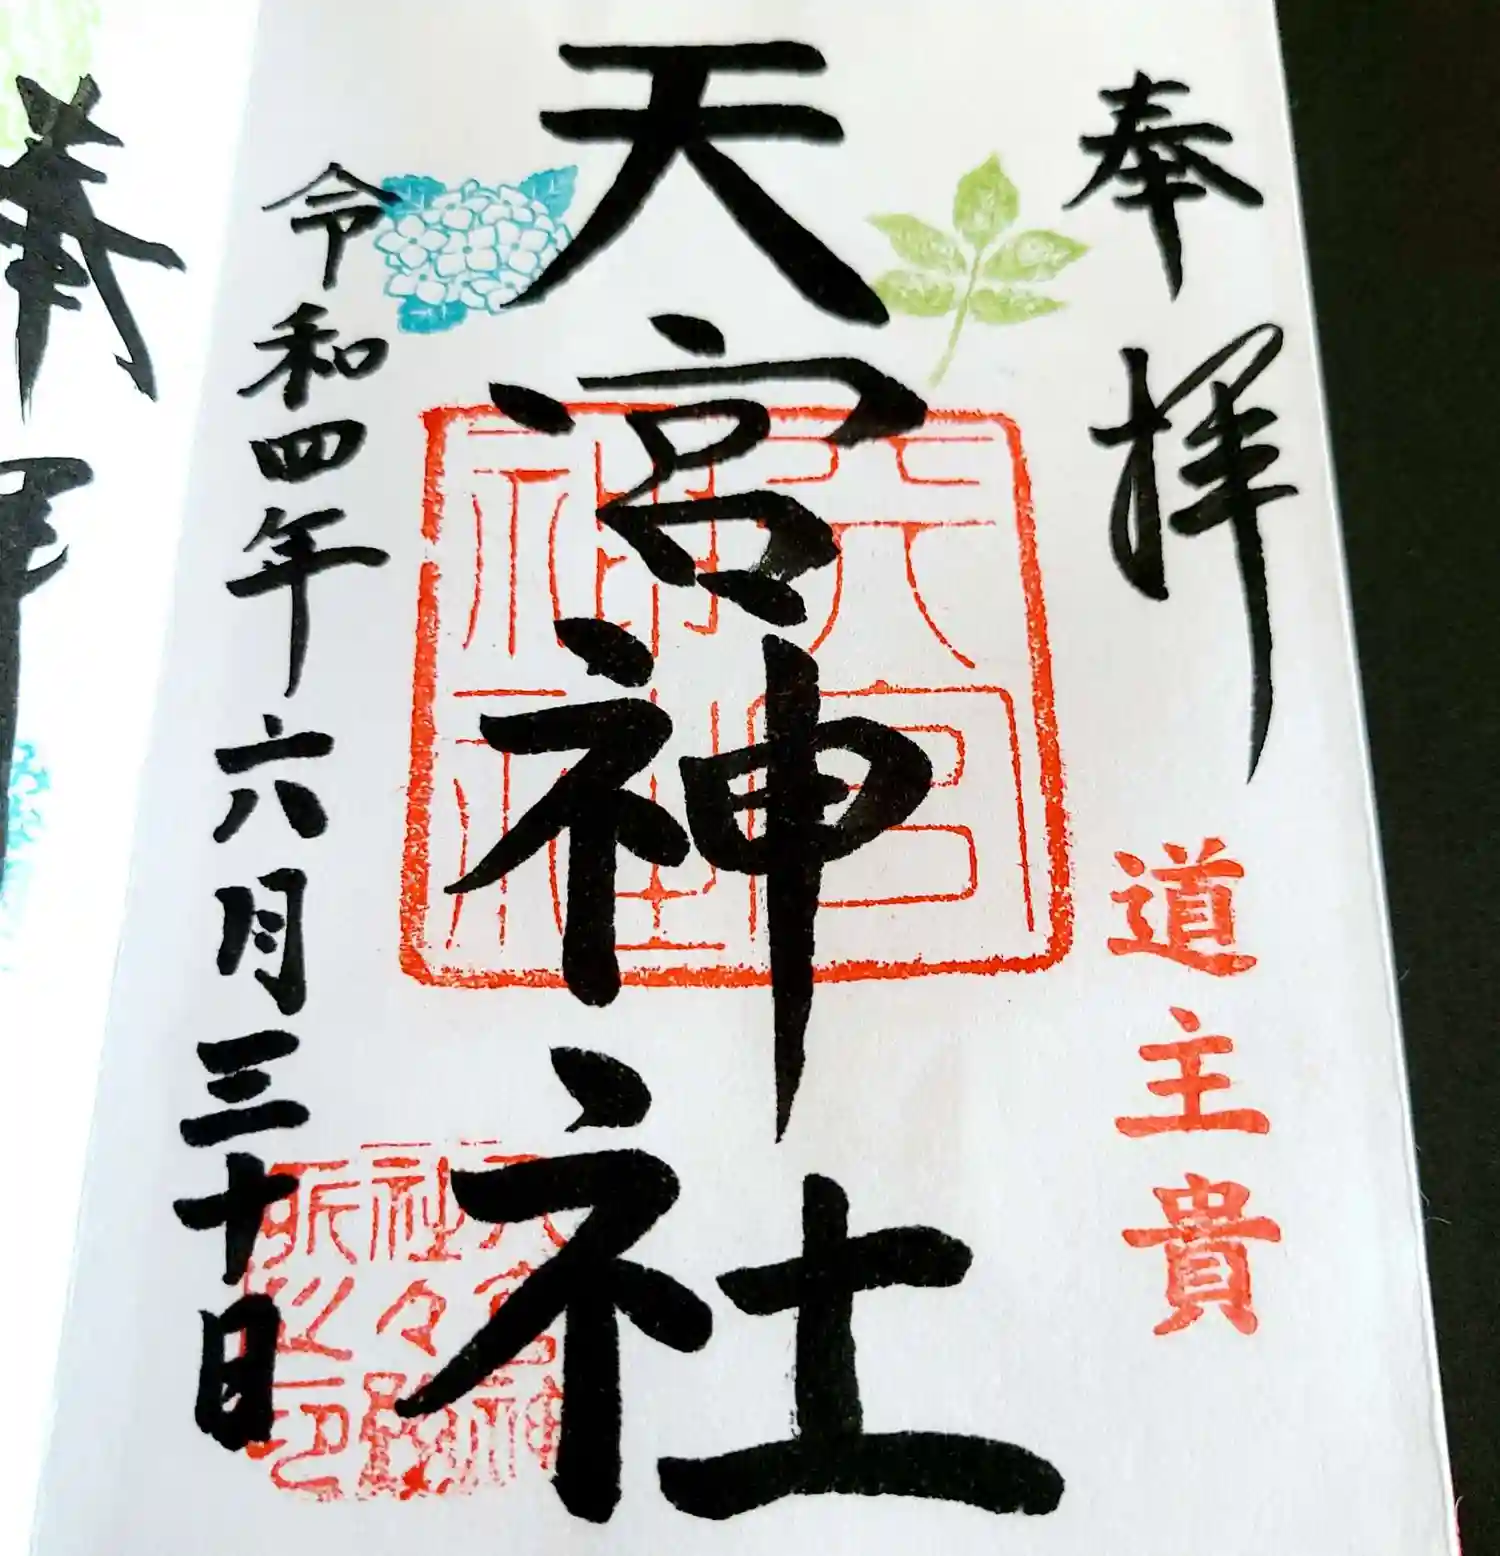 奉拝
道主貴
天宮神社
天宮神社
令和四年六月三十日
天宮神
社々務
所之印
奉拝